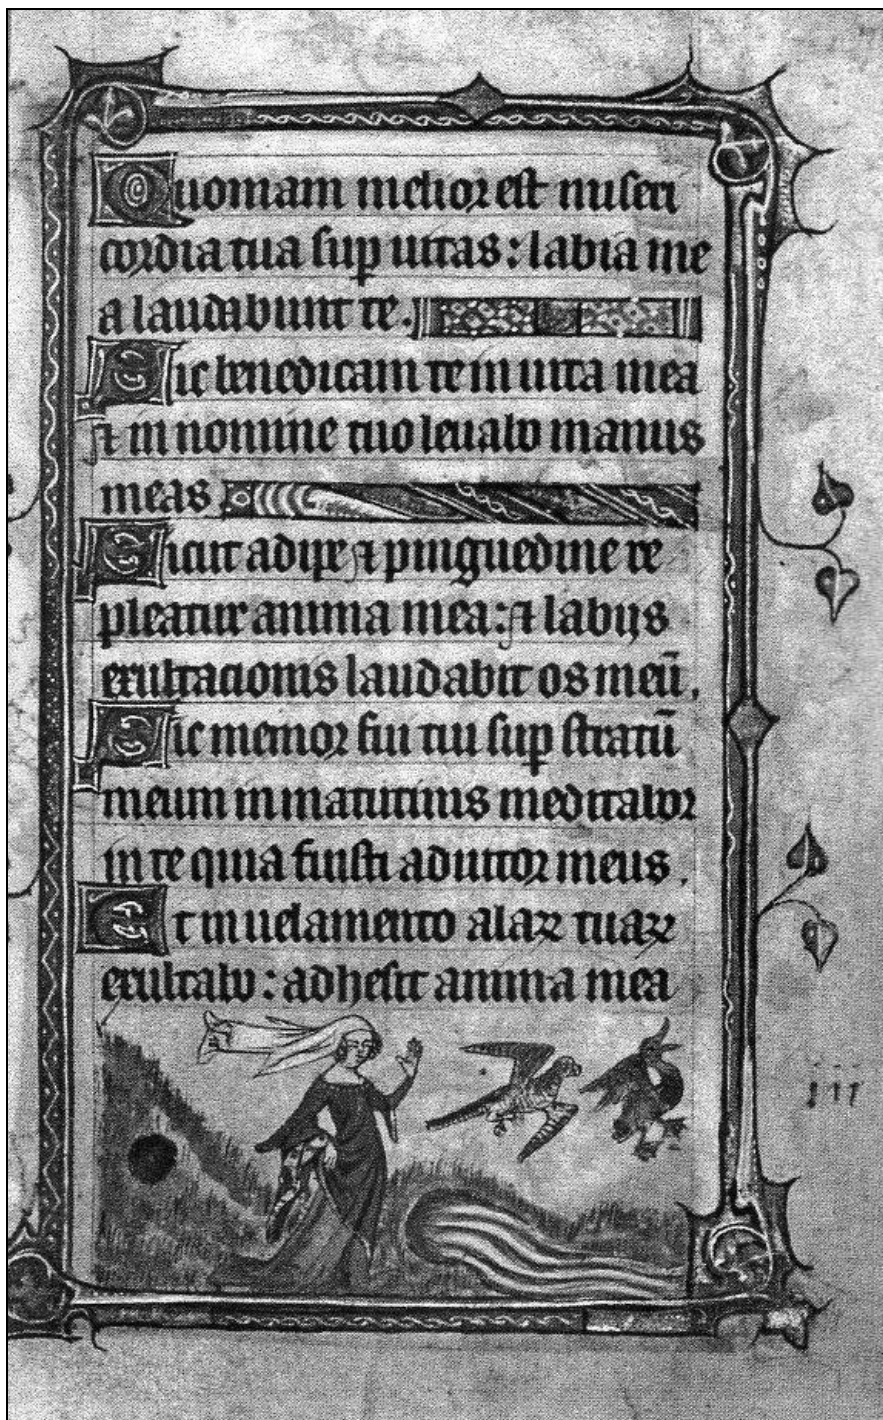 Quoniam melior est miseri
cordia tua sup uitas: labia me
a laudabunt te.
Sic benedicam te in uita mea
et in nomine tuo leuabo manus
meas
Sicut adipe et pinguedine re
pleatur anima mea: et labijs
exultacionis laudabit os meū.
Sic memor fui tui sup stratū
meum in matutinis meditabor
in te quia fuisti adiutor meus.
Et in uelamento alaꝝ tuaꝝ
exultabo: adhesit anima mea
iii